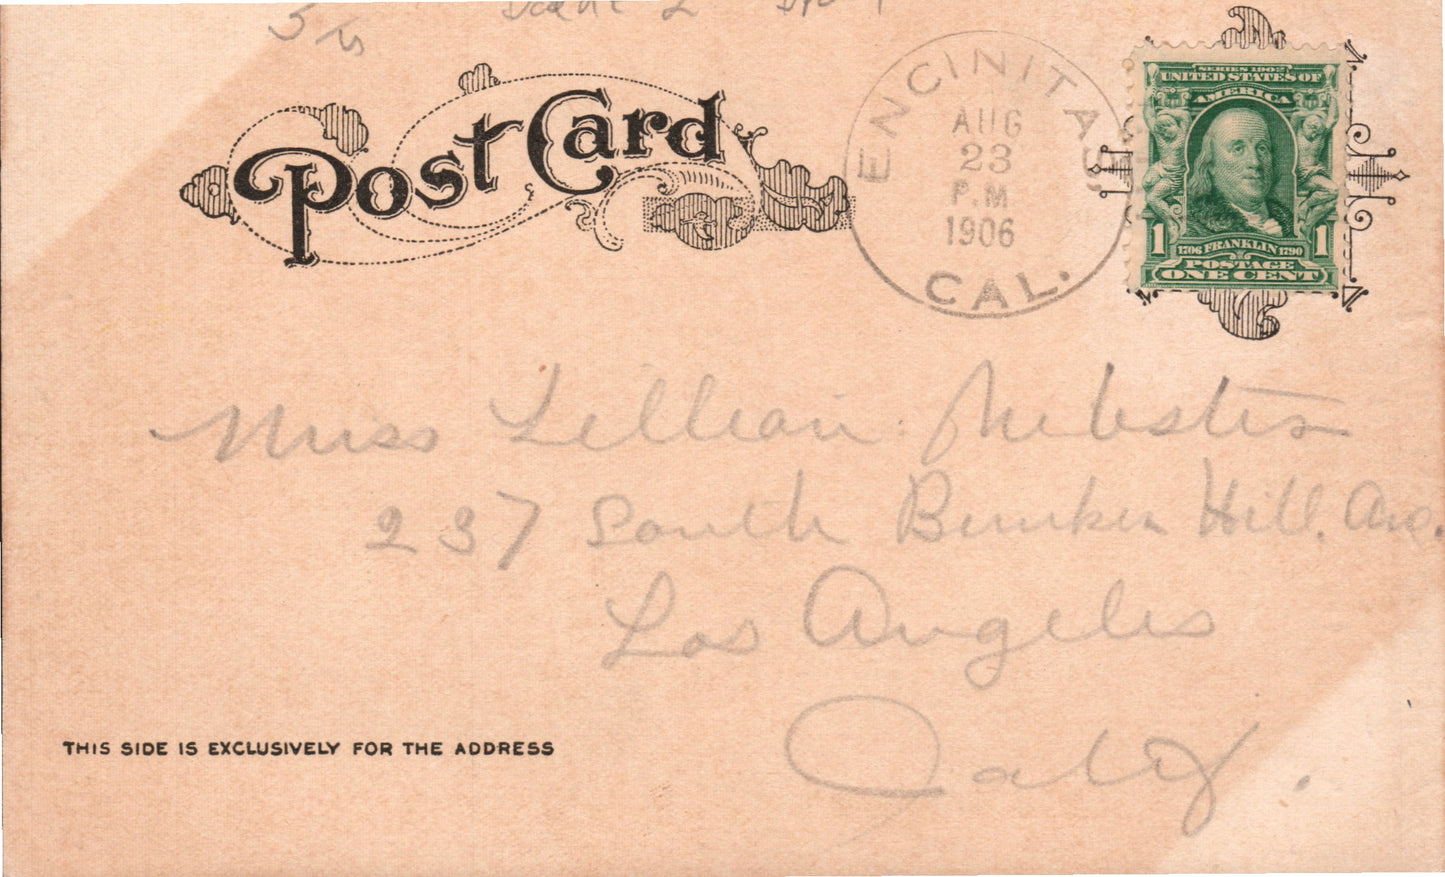 Post Card
ENCINITAS,
AUG
23
P.M.
1906
CAL.
SERIES 1902
UNITED STATES OF
AMERICA
1 1706 FRANKLIN 1790 1
POSTAGE
ONE CENT
Miss Lillian Webster
237 South Bunker Hill. Ave.
Los Angeles
Calif.
THIS SIDE IS EXCLUSIVELY FOR THE ADDRESS